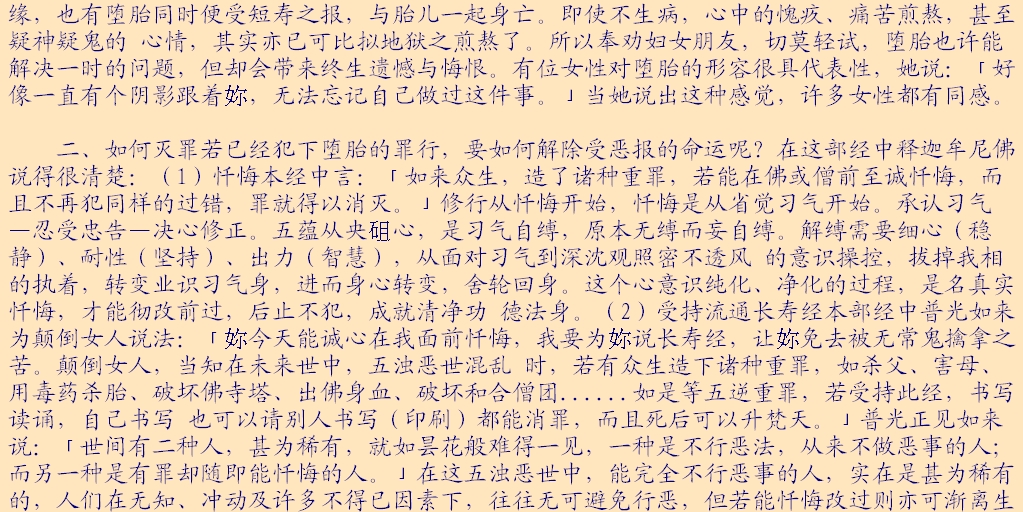 缘，也有堕胎同时便受短寿之报，与胎儿一起身亡。即使不生病，心中的愧疚、痛苦煎熬，甚至
疑神疑鬼的 心情，其实亦已可比拟地狱之煎熬了。所以奉劝妇女朋友，切莫轻试，堕胎也许能
解决一时的问题，但却会带来终生遗憾与悔恨。有位女性对堕胎的形容很具代表性，她说：「好
像一直有个阴影跟着妳，无法忘记自己做过这件事。」当她说出这种感觉，许多女性都有同感。
二、如何灭罪若已经犯下堕胎的罪行，要如何解除受恶报的命运呢？在这部经中释迦牟尼佛
说得很清楚：（1）忏悔本经中言：「如来众生，造了诸种重罪，若能在佛或僧前至诚忏悔，而
且不再犯同样的过错，罪就得以消灭。」修行从忏悔开始，忏悔是从省觉习气开始。承认习气
—忍受忠告—决心修正。五蕴从央砠心，是习气自缚，原本无缚而妄自缚。解缚需要细心（稳
静）、耐性（坚持）、出力（智慧），从面对习气到深沈观照密不透风 的意识操控，拔掉我相
的执着，转变业识习气身，进而身心转变，舍轮回身。这个心意识纯化、净化的过程，是名真实
忏悔，才能彻改前过，后止不犯，成就清净功 德法身。（2）受持流通长寿经本部经中普光如来
为颠倒女人说法：「妳今天能诚心在我面前忏悔，我要为妳说长寿经，让妳免去被无常鬼擒拿之
苦。颠倒女人，当知在未来世中，五浊恶世混乱 时，若有众生造下诸种重罪，如杀父、害母、
用毒药杀胎、破坏佛寺塔、出佛身血、破坏和合僧团......如是等五逆重罪，若受持此经，书写
读诵，自己书写 也可以请别人书写（印刷）都能消罪，而且死后可以升梵天。」普光正见如来
说：「世间有二种人，甚为稀有，就如昙花般难得一见，一种是不行恶法，从来不做恶事的人；
而另一种是有罪却随即能忏悔的人。」在这五浊恶世中，能完全不行恶事的人，实在是甚为稀有
的，人们在无知、冲动及许多不得已因素下，往往无可避免行恶，但若能忏悔改过则亦可渐离生